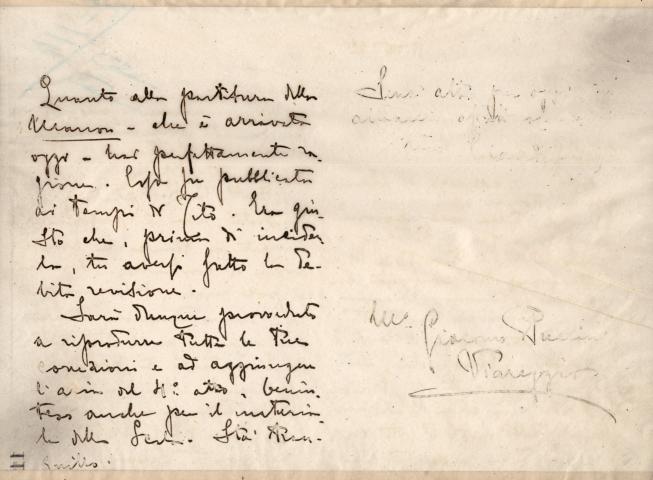 Quanto alla partitura della
Manon - che è arrivata
oggi - hai perfettamente ra-
gione. Essa fu pubblicata
ai tempi di Tito. Era giu-
sto che, prima di incider-
la, tu avessi fatto la de-
bita revisione.
Sarà dunque provveduto
a riprodurre tutte le tue
correzioni e ad aggiungere
l'aria del 4º atto, benin-
teso anche per il materia-
le della Scala. Stai tran-
quillo.
Senz'altro per oggi
Mº Giacomo Puccini
Viareggio
11